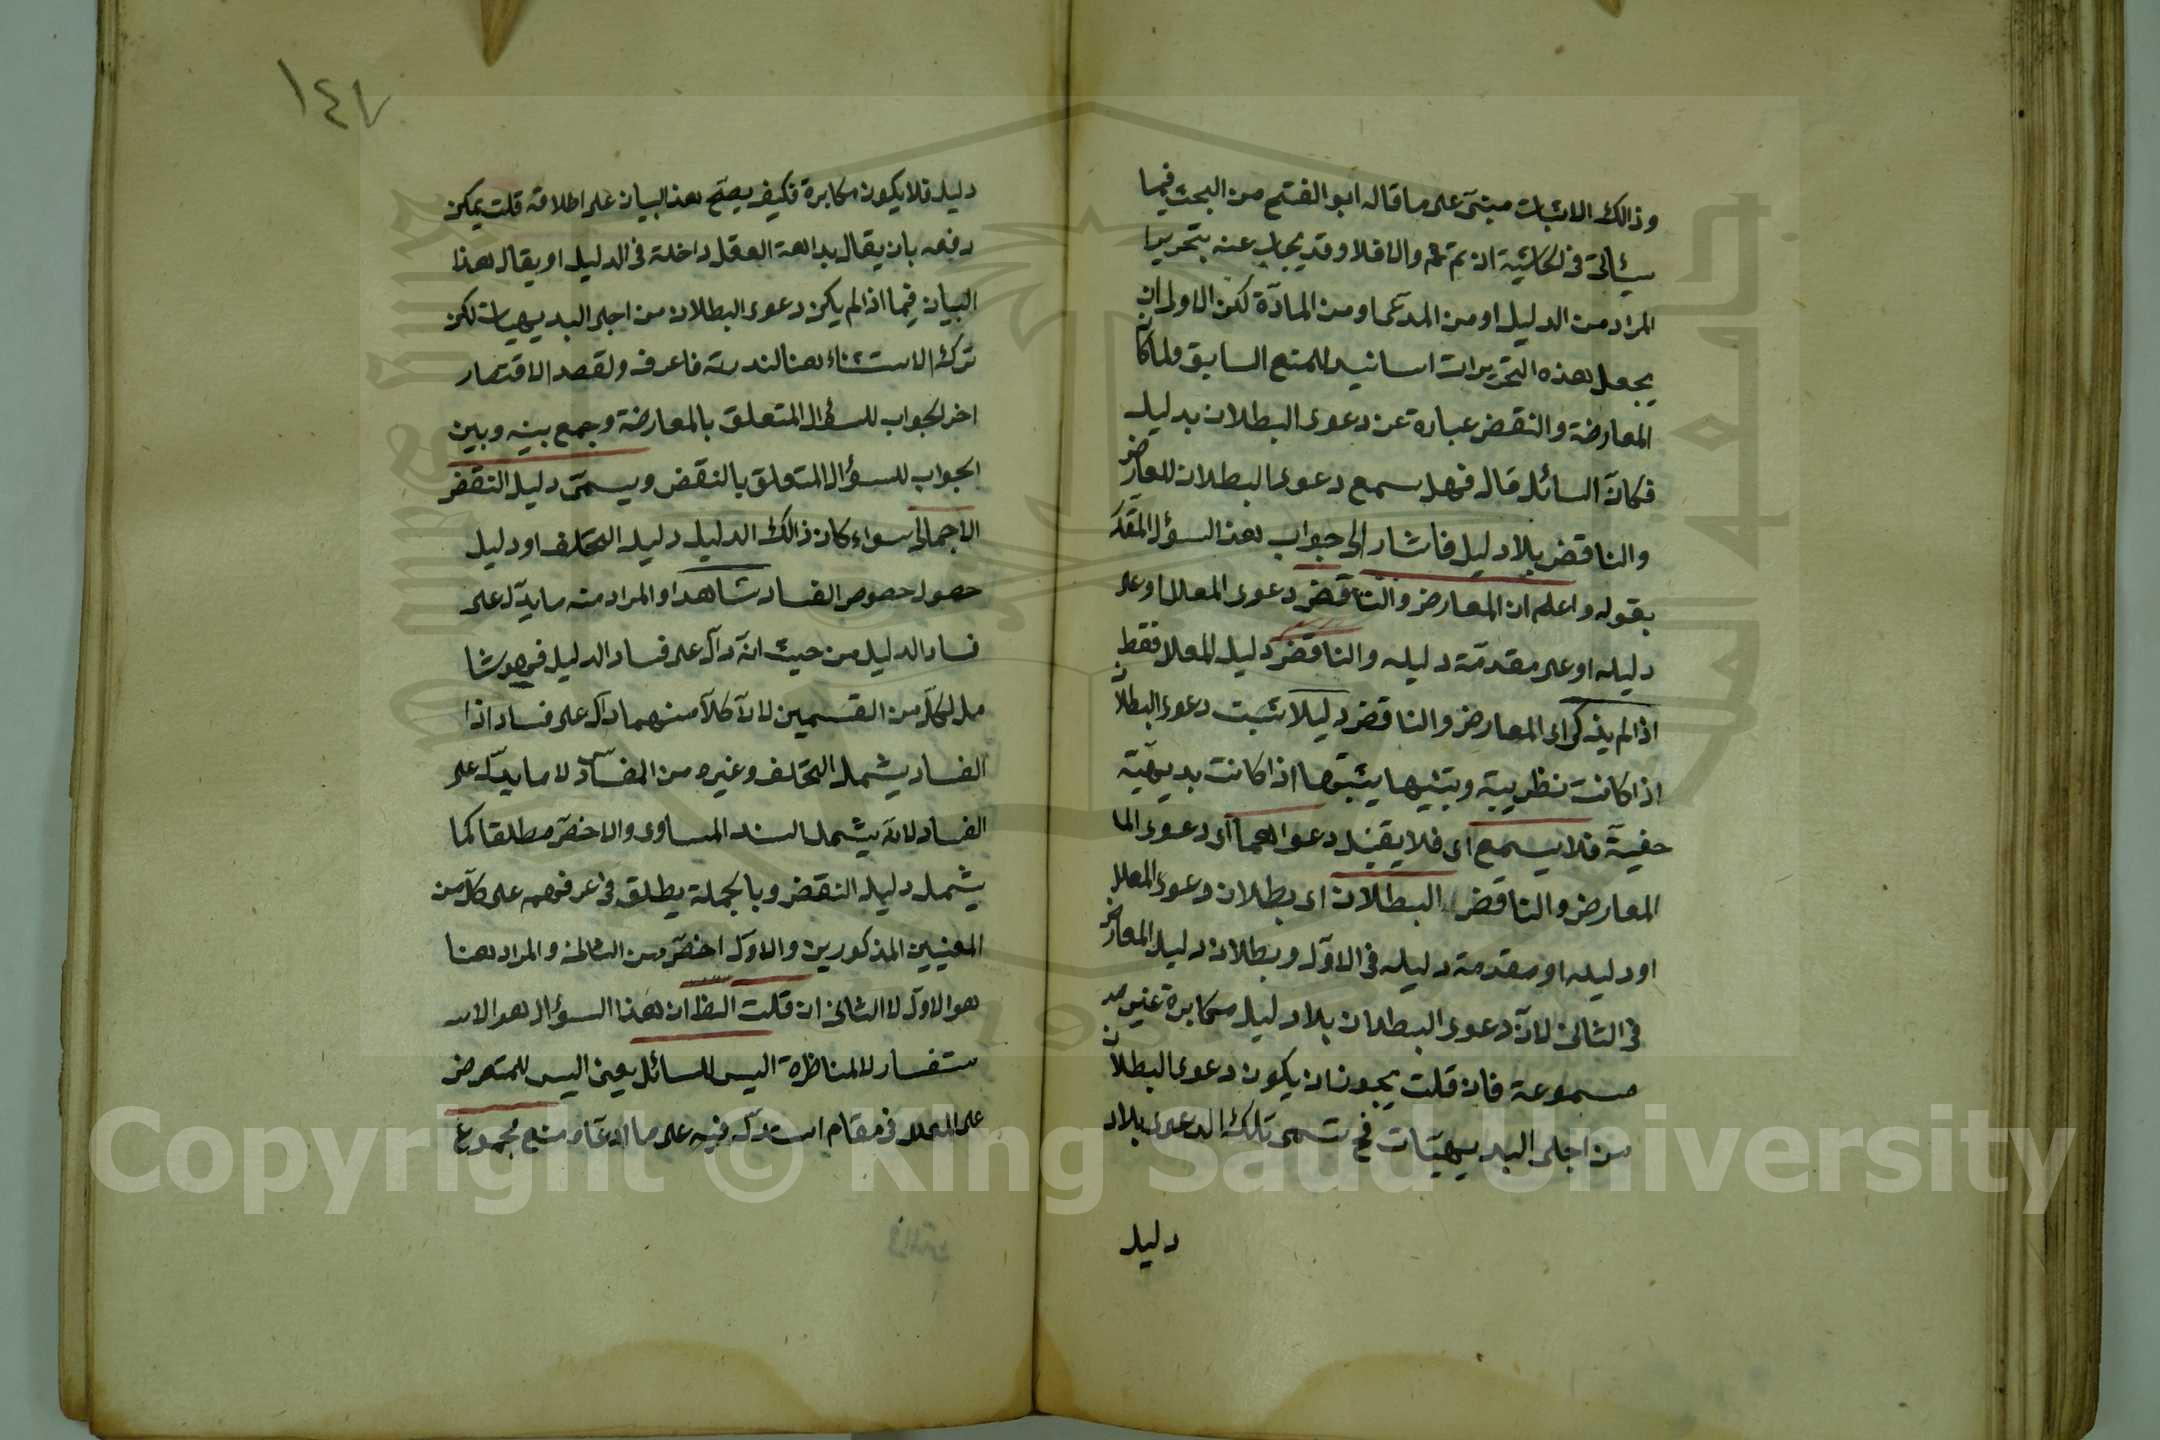 وذالك الاثبات مبنى على ما قاله ابو الفتح من البحث فيما
سيأتى فى الحاشية ان تم تم والا فلا وقد يجاب عنه بتحرير
المراد من الدليل او من المدعى او من المادة لكن الاولى ان
يجعل هذه التحريرات اسانيد للمنع السابق ولما كان
المعارضة والنقض عبارة عن دعوى البطلان بدليل
فكان السائل قال فهل يسمع دعوى البطلان للمعارض
والناقض بلا دليل فاشار الى جواب هذ السؤل المقد
بقوله واعلم ان المعارض والناقض دعوى المعلل او على
دليله او على مقدمة دليله والناقض دليل المعلل فقط
اذا لم يذكر اى المعارض والناقض دليلا يثبت دعوى البطلان
اذا كانت نظريية وتنبيها يثبتها اذا كانت بديهية
خفية فلا يسمع اى فلا يقبل دعواهما اى دعوى الما
المعارض والناقض البطلان اى بطلان دعوى المعلل
او دليله او مقدمة دليله فى الاول وبطلان دليل المعارض
فى الثانى لان دعوى البطلان بلا دليل مكابرة غير
مسموعة فان قلت يجوز ان يكون دعوى البطلان
من اجلى البديهيات فح تسمى تلك الدعوى بلاد
دليل
١٤٧
دليل فلا يكون مكابرة فكيف يصح هذ البيان على اطلاقه قلت يمكن
دفعه بان يقال بداهة العقل داخلة فى الدليل او يقال هذا
البيان فيما اذا لم يكن دعوى البطلان من اجلى البديهيات لكن
ترك الاستثناء هنا لندرته فاعرف ولقصد الاقتصار
اخر الجواب للسؤال المتعلق بالمعارضة وجمع بينه وبين
الجواب للسؤال المتعلق بالنقض ويسمى دليل النقض
الاجمالى سواء كان ذالك الدليل دليل التخلف او دليل
حصول خصوص الفساد شاهدا والمراد منه ما يدل على
فساد الدليل من حيث انه دال على فساد الدليل فهو شا
مل لكل من القسمين لان كلا منهما دال على فساد اذا
الفساد يشمل التخلف وغيره من المفاسد لا ما يدل على
الفساد لانه يشمل السند المساوى والاخص مطلقا كما
يشمل دليل النقض وبالجملة يطلق فى عرفهم على كل من
المعنيين المذكورين والاول اخص من الثانى والمراد هنا
هو الاول لا الثانى ان قلت الظ ان هذا السؤال هو الاس
ستفسار لا المناظرة اليس للسائل يعنى اليس للمتعرض
على المعلل فى مقام استدل فيه على ما ادعاه منع مجموع